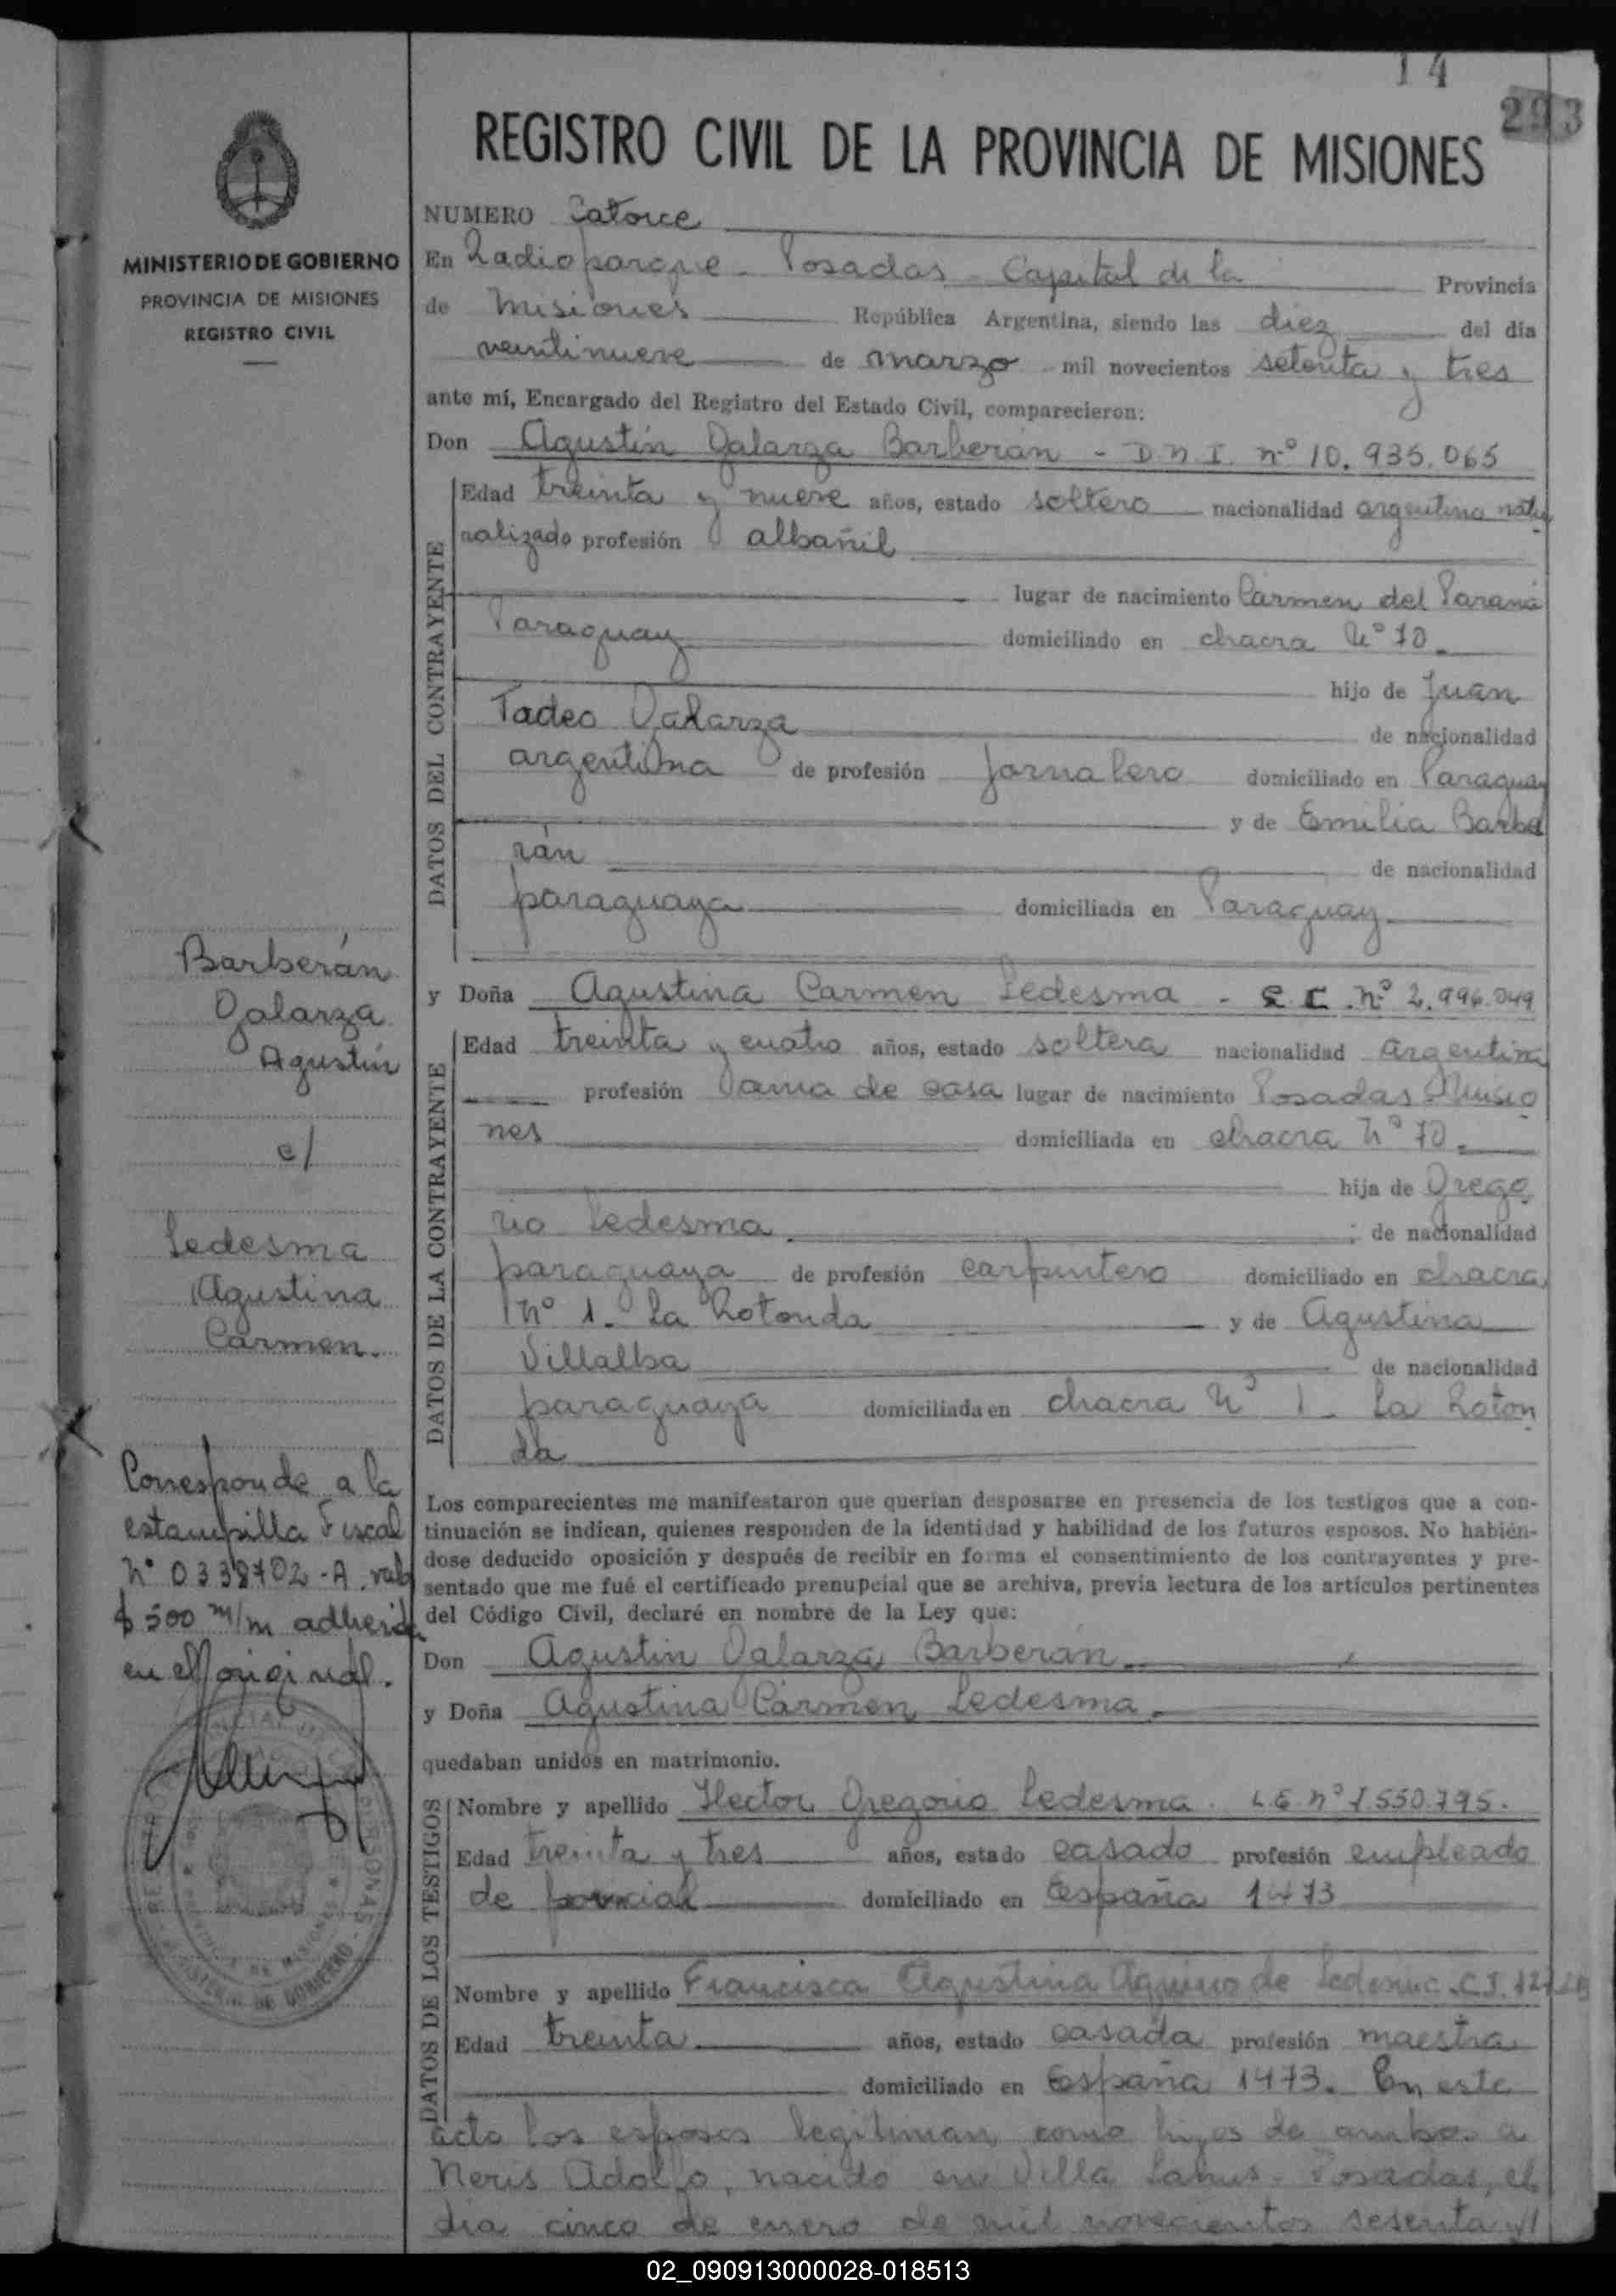 14
293
REGISTRO CIVIL DE LA PROVINCIA DE MISIONES
MINISTERIO DE GOBIERNO
PROVINCIA DE MISIONES
REGISTRO CIVIL
NUMERO Catorce
En Radioparque - Posadas - Capital de la Provincia
de Misiones República Argentina, siendo las diez del día
veintinueve de marzo mil novecientos setenta y tres
ante mí, Encargado del Registro del Estado Civil, comparecieron:
Don Agustín Galarza Barberán - D.N.I. nº 10.935.065
DATOS DEL CONTRAYENTE
Edad treinta y nueve años, estado soltero nacionalidad argentina natu
ralizado profesión albañil
lugar de nacimiento Carmen del Paraná
Paraguay domiciliado en chacra Nº 70.
hijo de Juan
Tadeo Galarza de nacionalidad
argentina de profesión jornalero domiciliado en Paraguay
y de Emilia Barbe
rán de nacionalidad
paraguaya domiciliada en Paraguay
Barberán
Galarza
Agustín
c/
Ledesma
Agustina
Carmen.
y Doña Agustina Carmen Ledesma - nº 2.996.049
DATOS DE LA CONTRAYENTE
Edad treinta y cuatro años, estado soltera nacionalidad argentina
profesión ama de casa lugar de nacimiento Posadas Misio
nes domiciliada en chacra Nº 70.
hija de Grego
rio Ledesma de nacionalidad
paraguaya de profesión carpintero domiciliado en chacra
Nº 1. La Rotonda y de Agustina
Villalba de nacionalidad
paraguaya domiciliada en chacra Nº 1 - La Roton
da
Corresponde a la
estampilla Fiscal
Nº 0338702-A. valor
$ 500 m/m adherida
en el original.
Los comparecientes me manifestaron que querían desposarse en presencia de los testigos que a con-
tinuación se indican, quienes responden de la identidad y habilidad de los futuros esposos. No habién-
dose deducido oposición y después de recibir en forma el consentimiento de los contrayentes y pre-
sentado que me fué el certificado prenupcial que se archiva, previa lectura de los artículos pertinentes
del Código Civil, declaré en nombre de la Ley que:
Don Agustín Galarza Barberán
y Doña Agustina Carmen Ledesma.
quedaban unidos en matrimonio.
DATOS DE LOS TESTIGOS
Nombre y apellido Hector Gregorio Ledesma. L.E. nº 7.550.795.
Edad treinta y tres años, estado casado profesión empleado
de domiciliado en España 1473
Nombre y apellido Francisca Agustina Aquino de Ledesma. C.I.
Edad treinta años, estado casada profesión maestra
domiciliado en España 1473. En este
acto los esposos legitiman como hijos de ambos a
Neris Adolfo, nacido en Villa Lanus - Posadas, el
dia cinco de enero de mil novecientos sesenta y
02_090913000028-018513